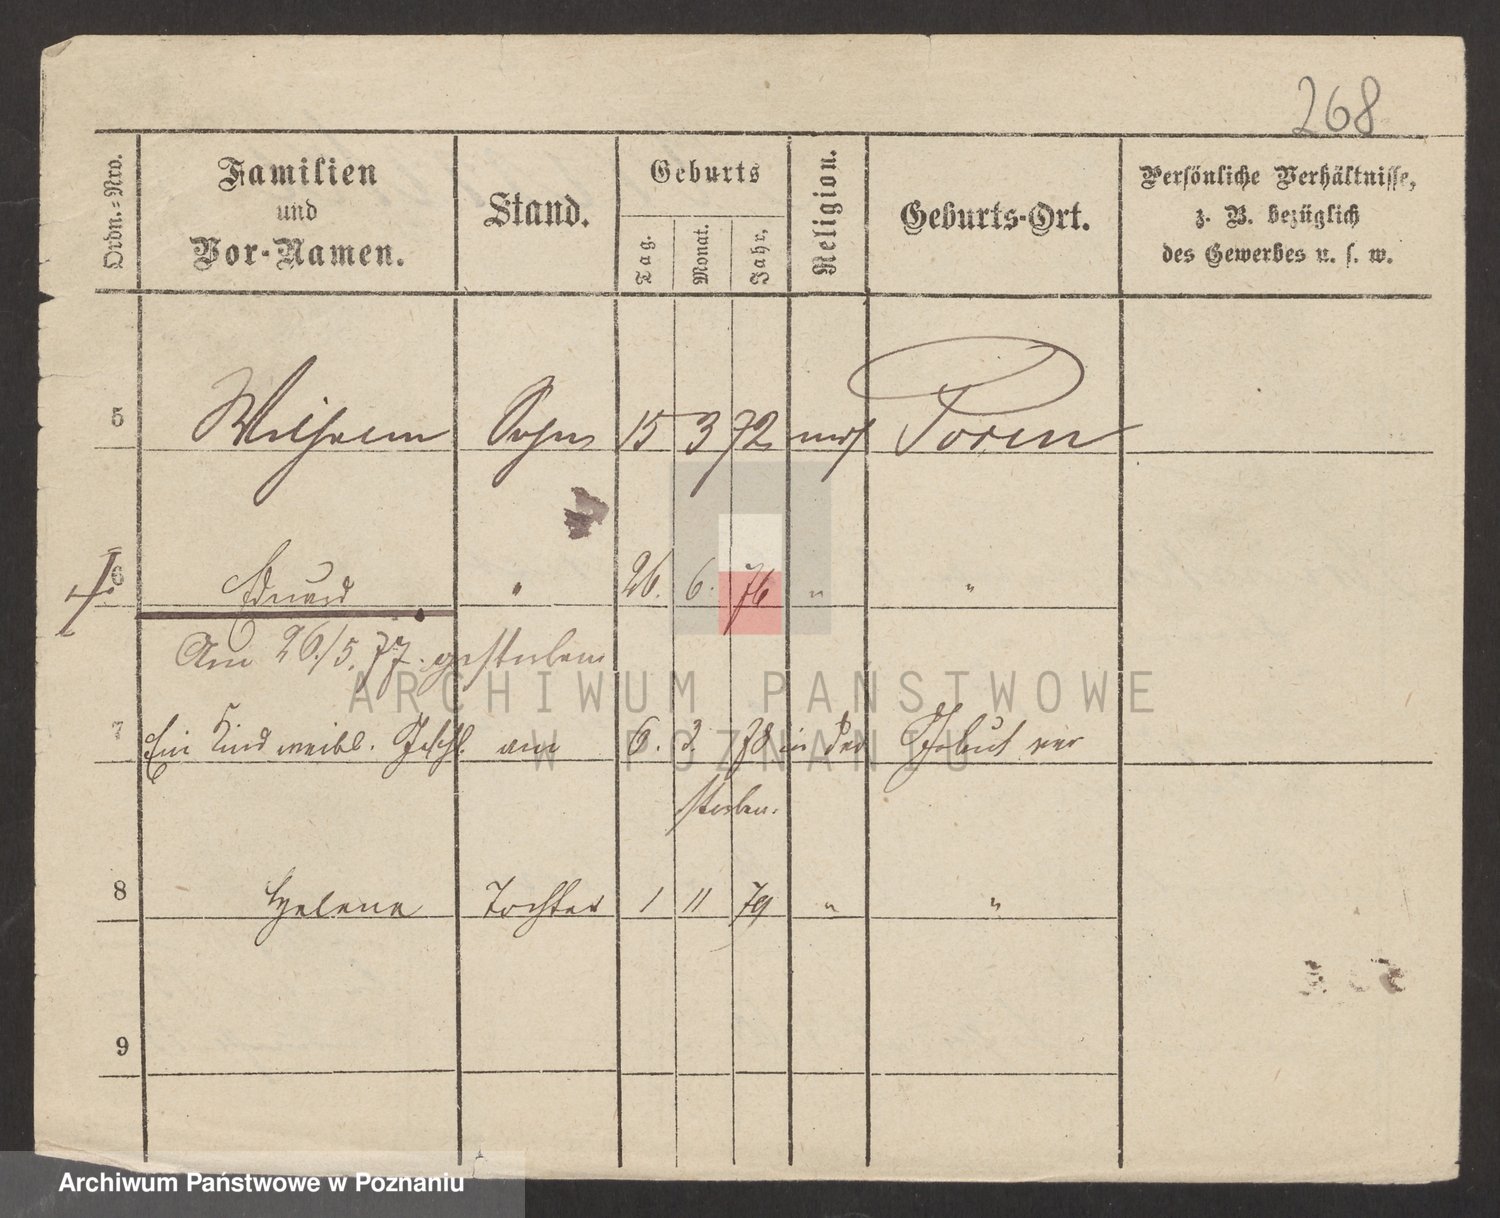 268
Ordn.-Nro.
Familien
und
Vor-Namen.
Stand.
Geburts
Tag.
Monat.
Jahr,
Religion.
Geburts-Ort.
Persönliche Verhältnisse,
z. B. bezüglich
des Gewerbes u. s. w.
5 Wilhelm Sohn 15 3 72 Posen
6 Eduard " 26. 6. 76 " "
Am 26./5. 77. gestorben
7 Ein Kind weibl. Geschl. am 6. 3. 78 in der Geburt ver
storben.
8 Helene Tochter 1 11 79 " "
9
ARCHIWUM PAŃSTWOWE
W POZNANIU
Archiwum Państwowe w Poznaniu